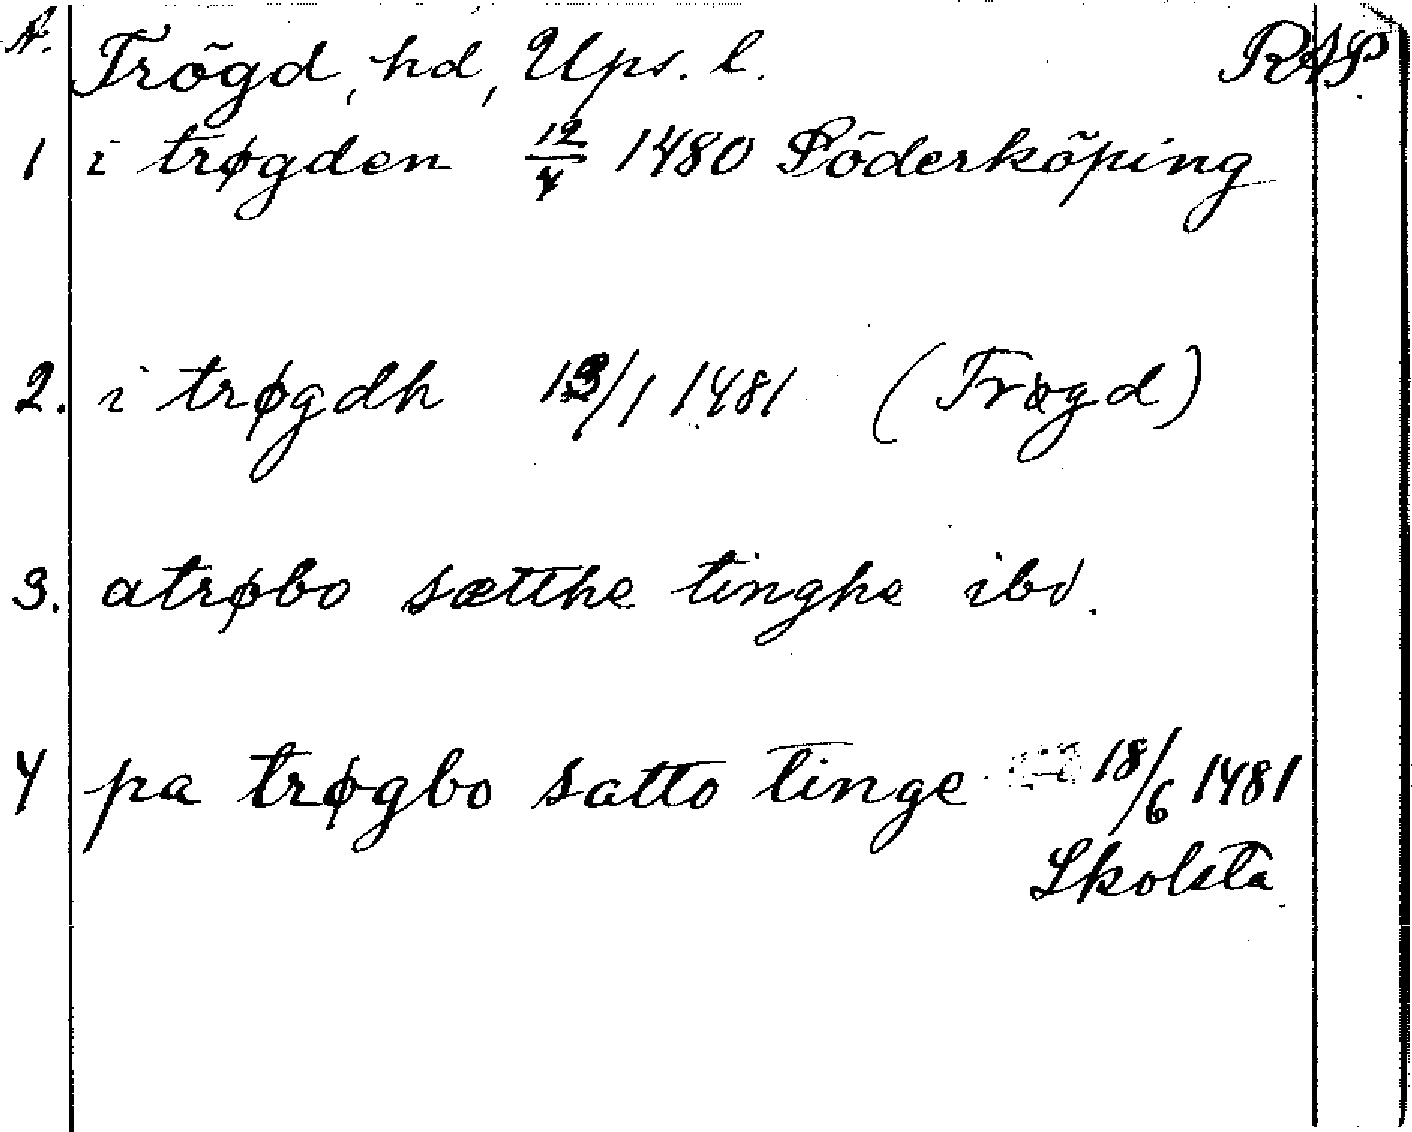 A. Trögd, hd, Ups. l. RAP
1 i trøgden 12/4 1480 Söderköping
2. i trøgdh 13/1 1481 (Trøgd)
3. atrøbo sætthe tinghe ibd.
4 pa trøgbo satto tinge 18/6 1481
Skolsta